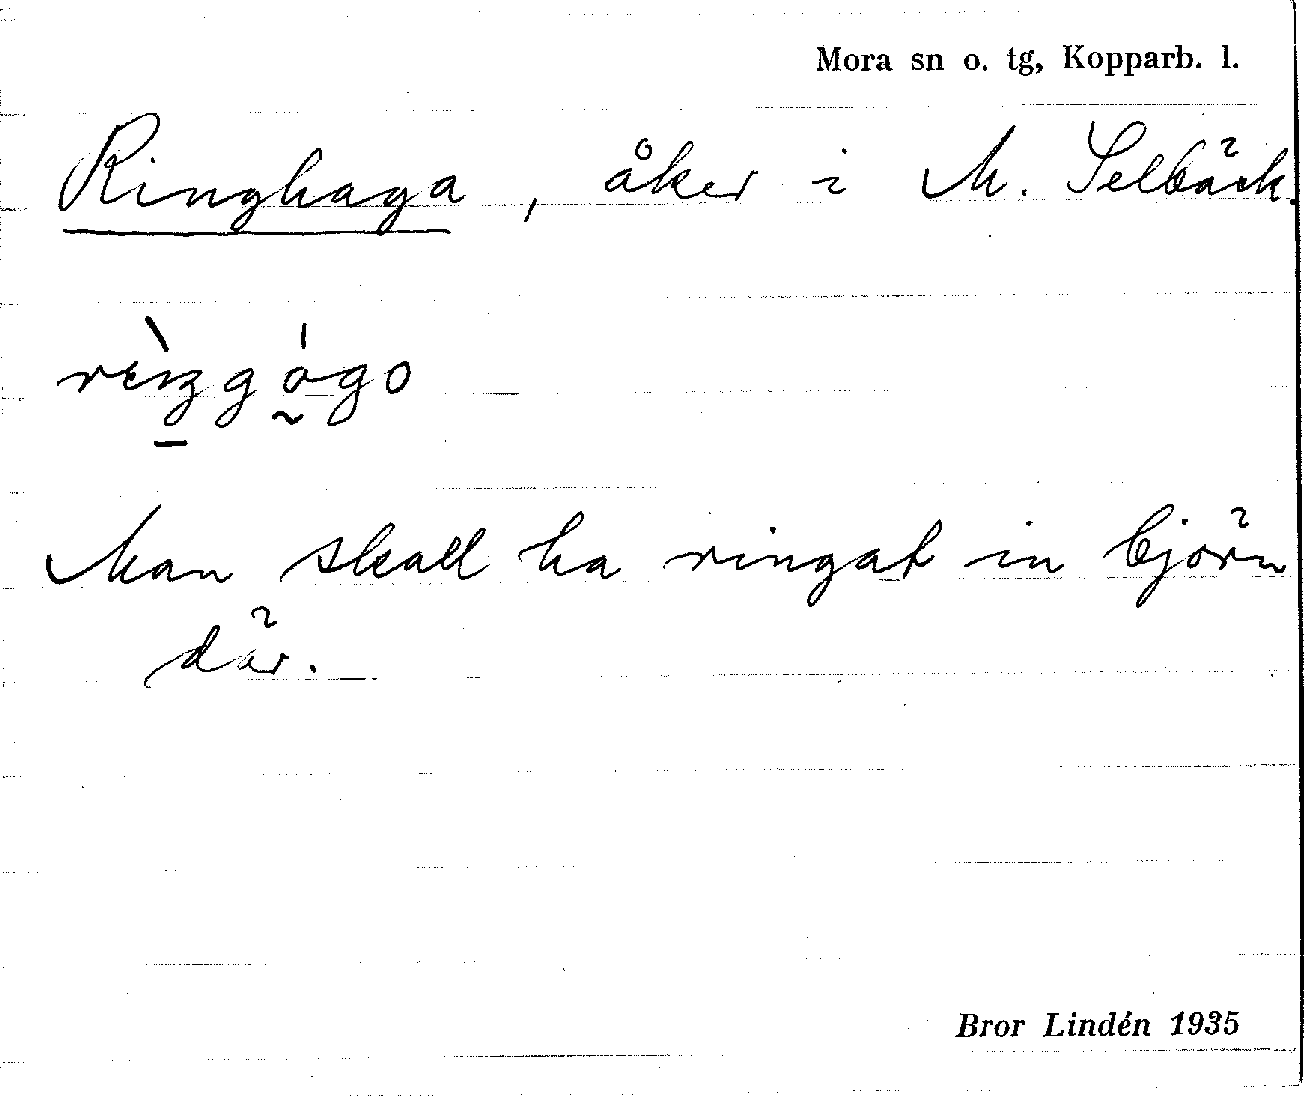 Mora sn o. tg, Kopparb. l.
Ringhaga, åker i M. Selbäck.
Man skall ha ringat in björn
där.
Bror Lindén 1935